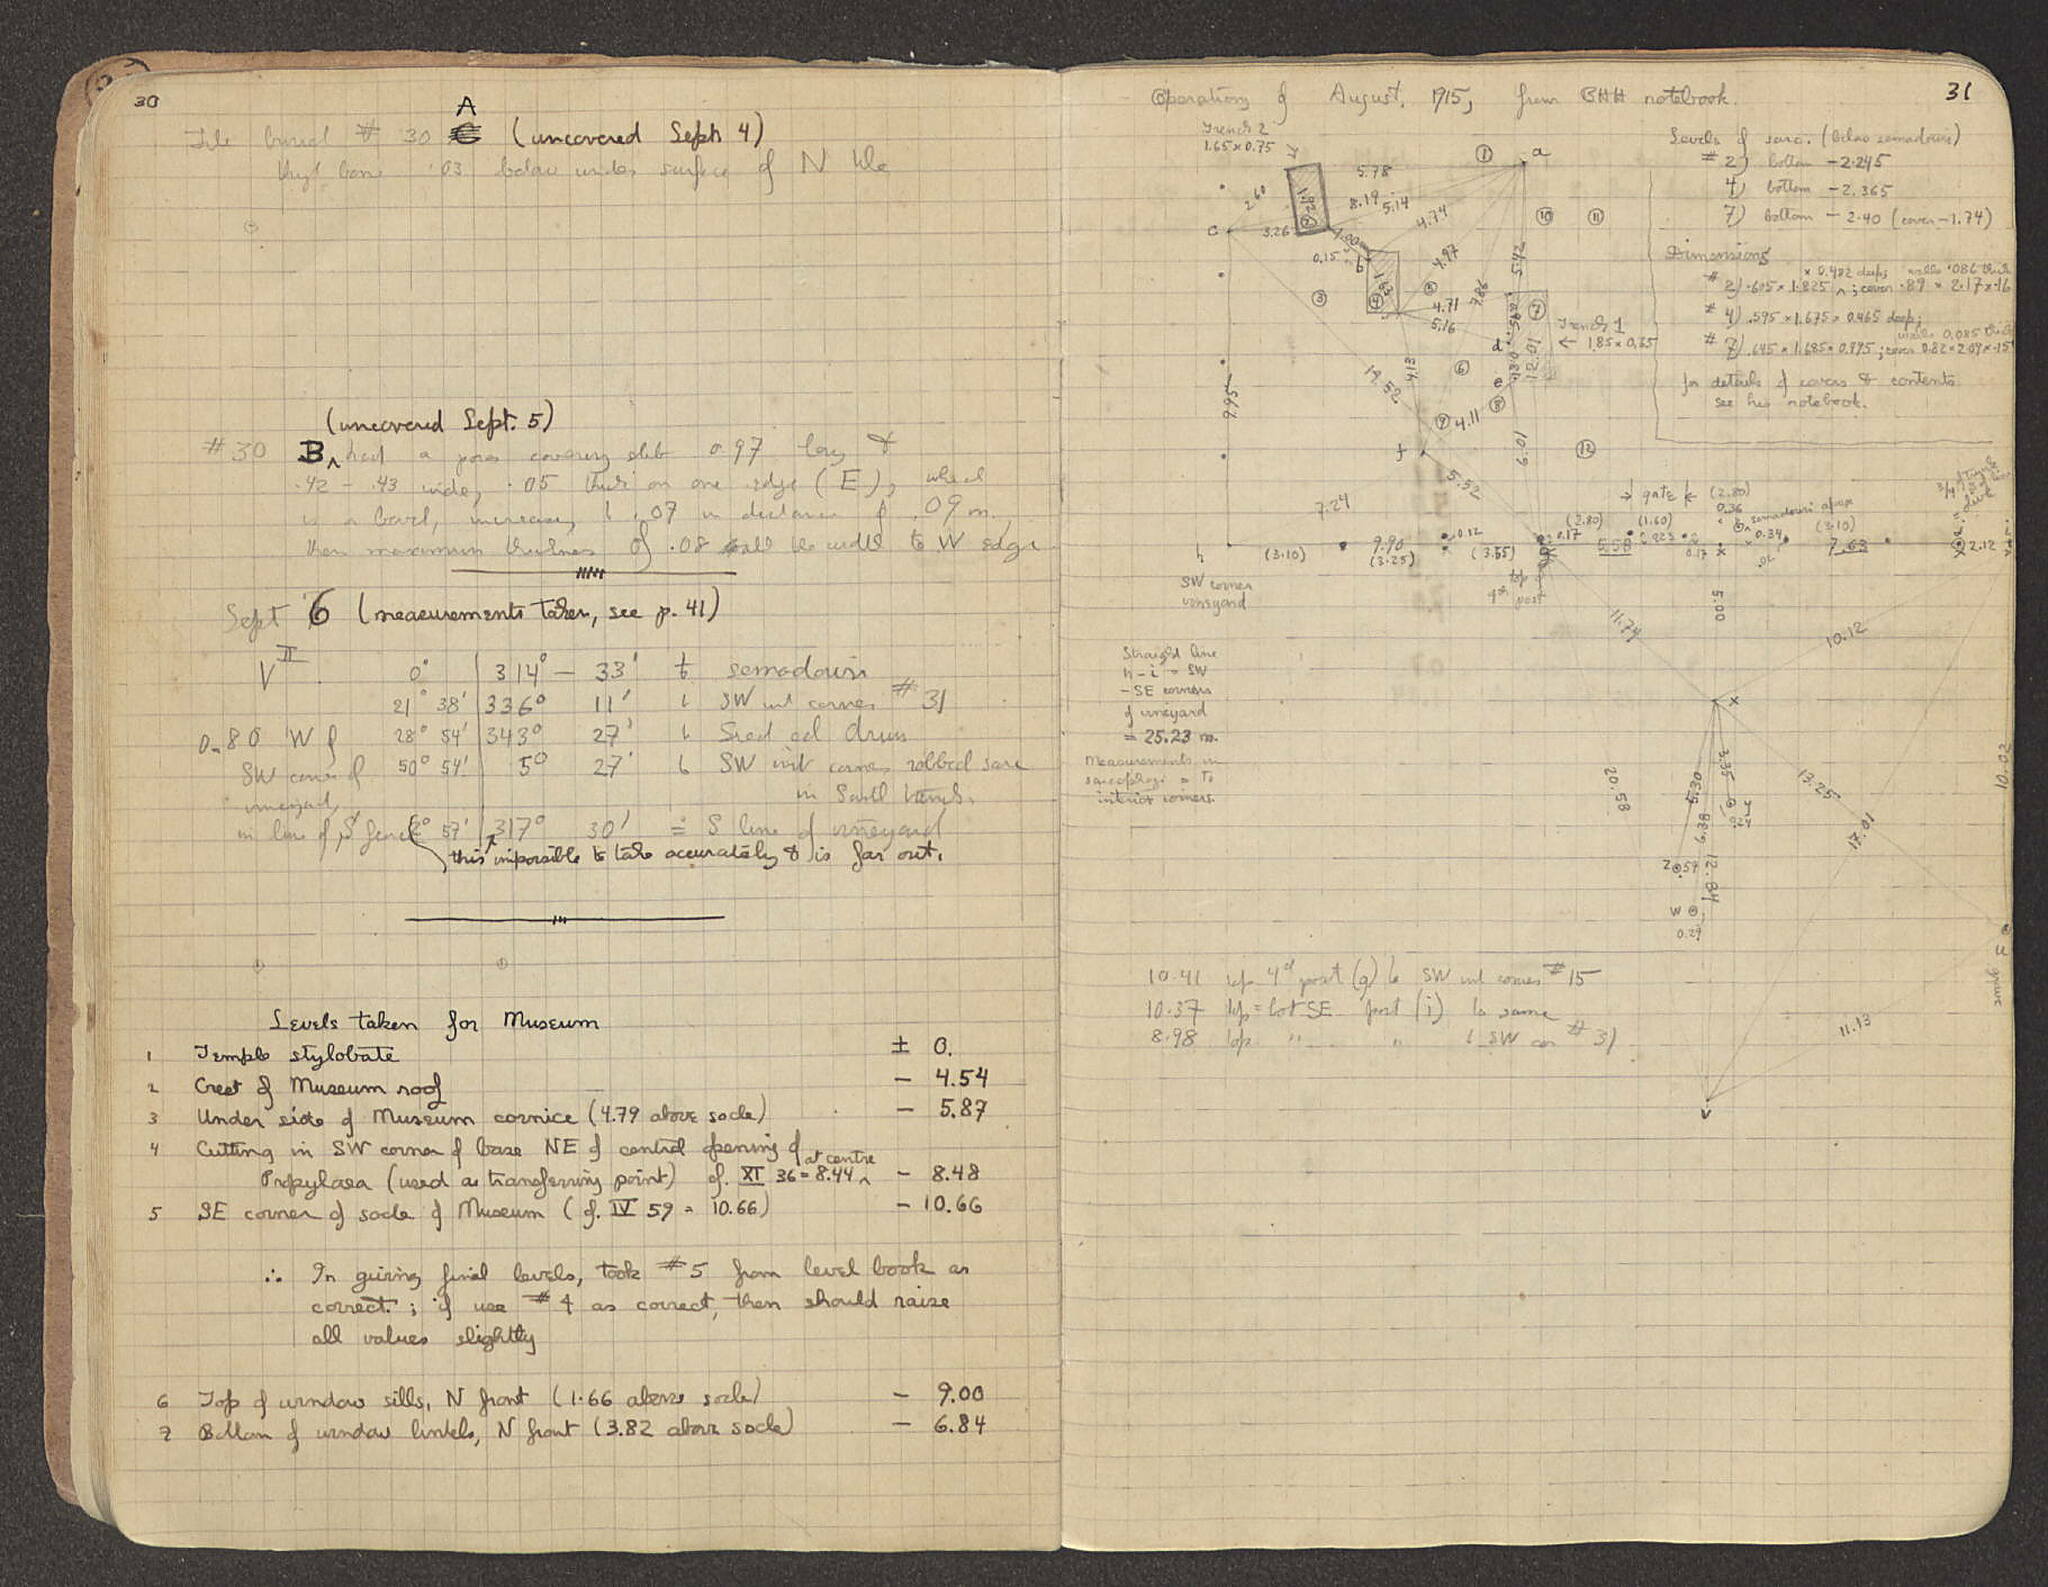 30
A
Tile burial # 30 (uncovered Sept. 4)
thigh bone .03 below under surface of N tile
(uncovered Sept. 5)
# 30 B had a poros covering slab 0.97 long &
.42 - .43 wide, .05 thick on one edge (E), where
is a bevel, increasing to .07 in distance of .09 m.
then maximum thickness of .08 all the width to W edge
Sept 6 (measurements taken, see p. 41)
V II 0° 314° — 33' to semadouri
21° 38' 336° 11' to SW int corner # 31
0.80 W of 28° 54' 343° 27' to drum
SW corner of 50° 54' 5° 27' to SW int corner robbed sarc
vineyard, in South trench.
in line of S fence 2° 57' 317° 30' = S line of vineyard
this impossible to take accurately & is far out.
Levels taken for Museum
1 Temple stylobate ± 0.
2 Crest of Museum roof — 4.54
3 Under side of Museum cornice (4.79 above socle) — 5.87
4 Cutting in SW corner of base NE of central opening of
Propylaea (used as transferring point) cf. XI 36 = 8.44 at centre — 8.48
5 SE corner of socle of Museum (cf. IV 59 = 10.66) — 10.66
∴ In giving final levels, took # 5 from level book as
correct; if use # 4 as correct, then should raise
all values slightly
6 Top of window sills, N front (1.66 above socle) — 9.00
7 Bottom of window lintels, N front (3.82 above socle) — 6.84
31
Operations of August, 1915, from notebook.
Trench 2
1.65 x 0.75
Levels of sarc. (below semadouri)
# 2) bottom -2.245
4) bottom -2.365
7) bottom - 2.40 (cover -1.74)
Dimensions
x 0.482 deep, walls .086 thick
# 2) .605 x 1.825 ; cover .89 x 2.17 x .16
# 4) .595 x 1.675 x 0.465 deep;
walls 0.085 thick
# 7) .645 x 1.685 x 0.495 ; cover 0.82 x 2.09 x .15
for details of covers & contents
see his notebook.
1
a
5.78
2.60
8.19
5.14
4.74
10
11
c
3.26
1.00
0.15
b
4.97
5.42
3
4
5
4.71
5.16
7.86
7
Trench 1
← 1.85 x 0.65
d
6
e
8
12.01
14.52
4.13
9.95
9
4.11
f
6.01
12
5.52
7.24
→ gate ←
(2.80)
0.36
semadouri
(2.80)
(1.60)
(3.10)
0.12
0.17
0.34
h
(3.10)
9.90
(3.25)
(3.55)
5.58
0.17
7.63
2.12
SW corner
vineyard
top
4th post
5.00
11.74
10.12
Straight line
h - i = SW
- SE corners
of vineyard
= 25.23 m.
Measurements in
sarcophagi = to
interior corners.
x
20.58
5.30
3.35
13.25
10.02
6.38
17.01
z
.59
12.84
w
0.29
u
10.41 top 4th post (g) to SW int corner # 15
10.37 top = lot SE post (i) to same
8.98 top " " to SW cor # 31
11.13
v